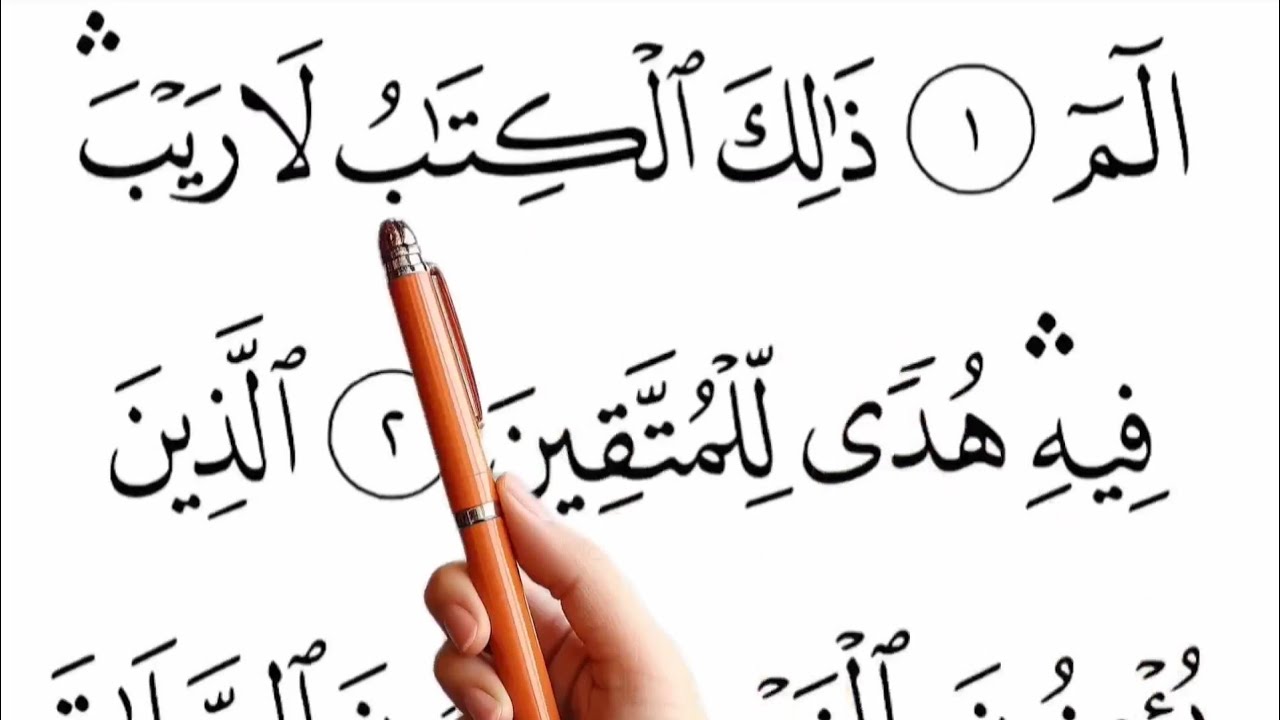 الٓمٓ ١ ذَٰلِكَ ٱلْكِتَٰبُ لَا رَيْبَ ۛ
فِيهِ ۛ هُدًى لِّلْمُتَّقِينَ ٢ ٱلَّذِينَ